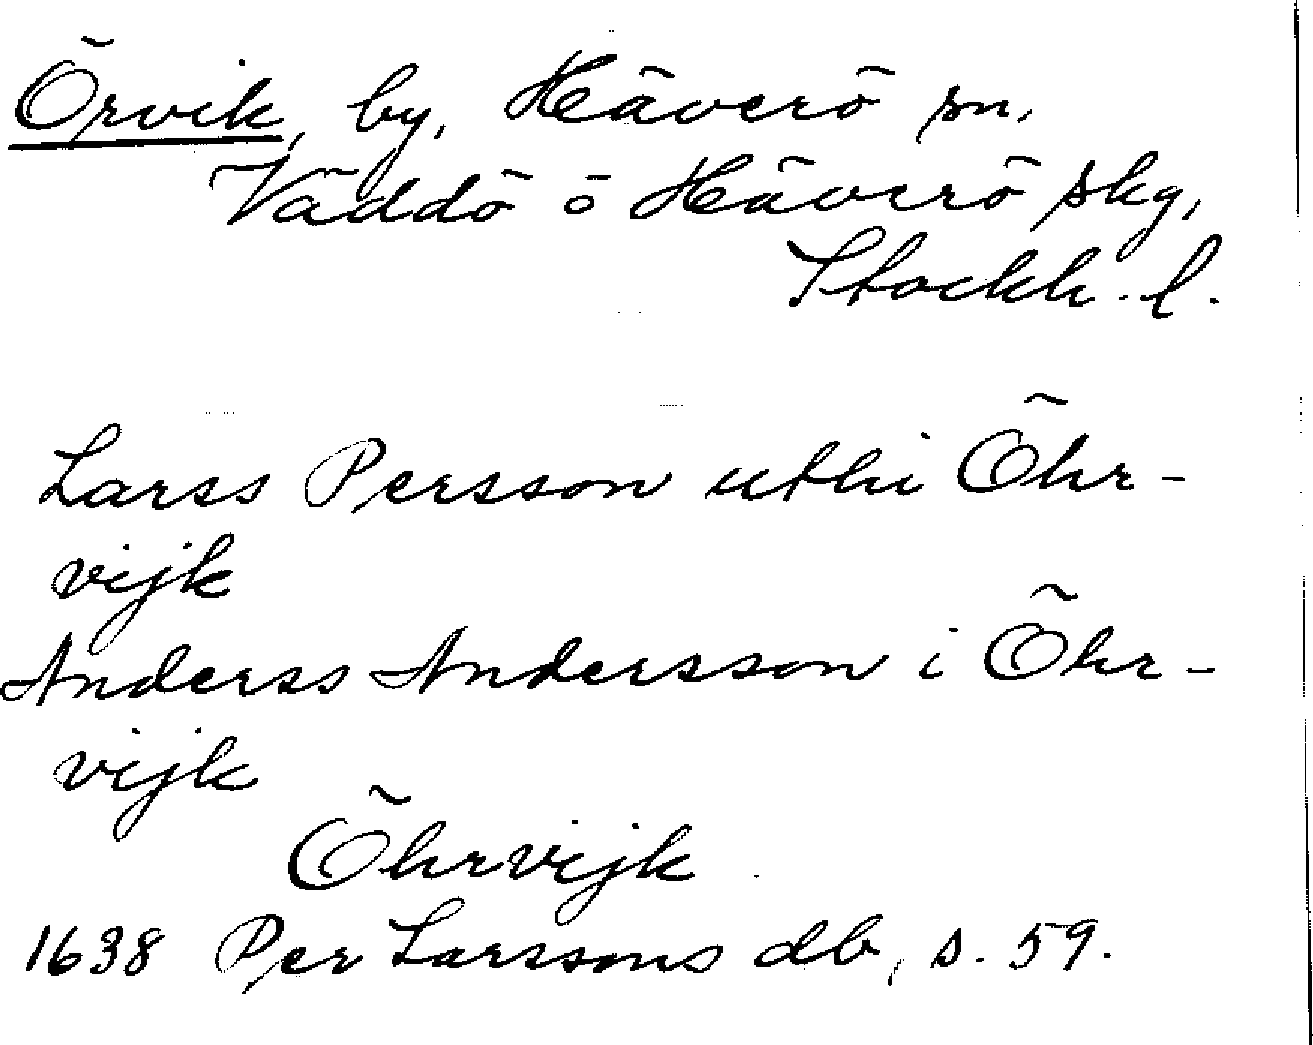 Örvik, by, Häverö sn,
Väddö o Häverö skg,
Stockh. l.
Larss Persson uthi Öhr-
vijk
Anderss Andersson i Öhr-
vijk
Öhrvijk
1638 Per Larssons db, s. 59.